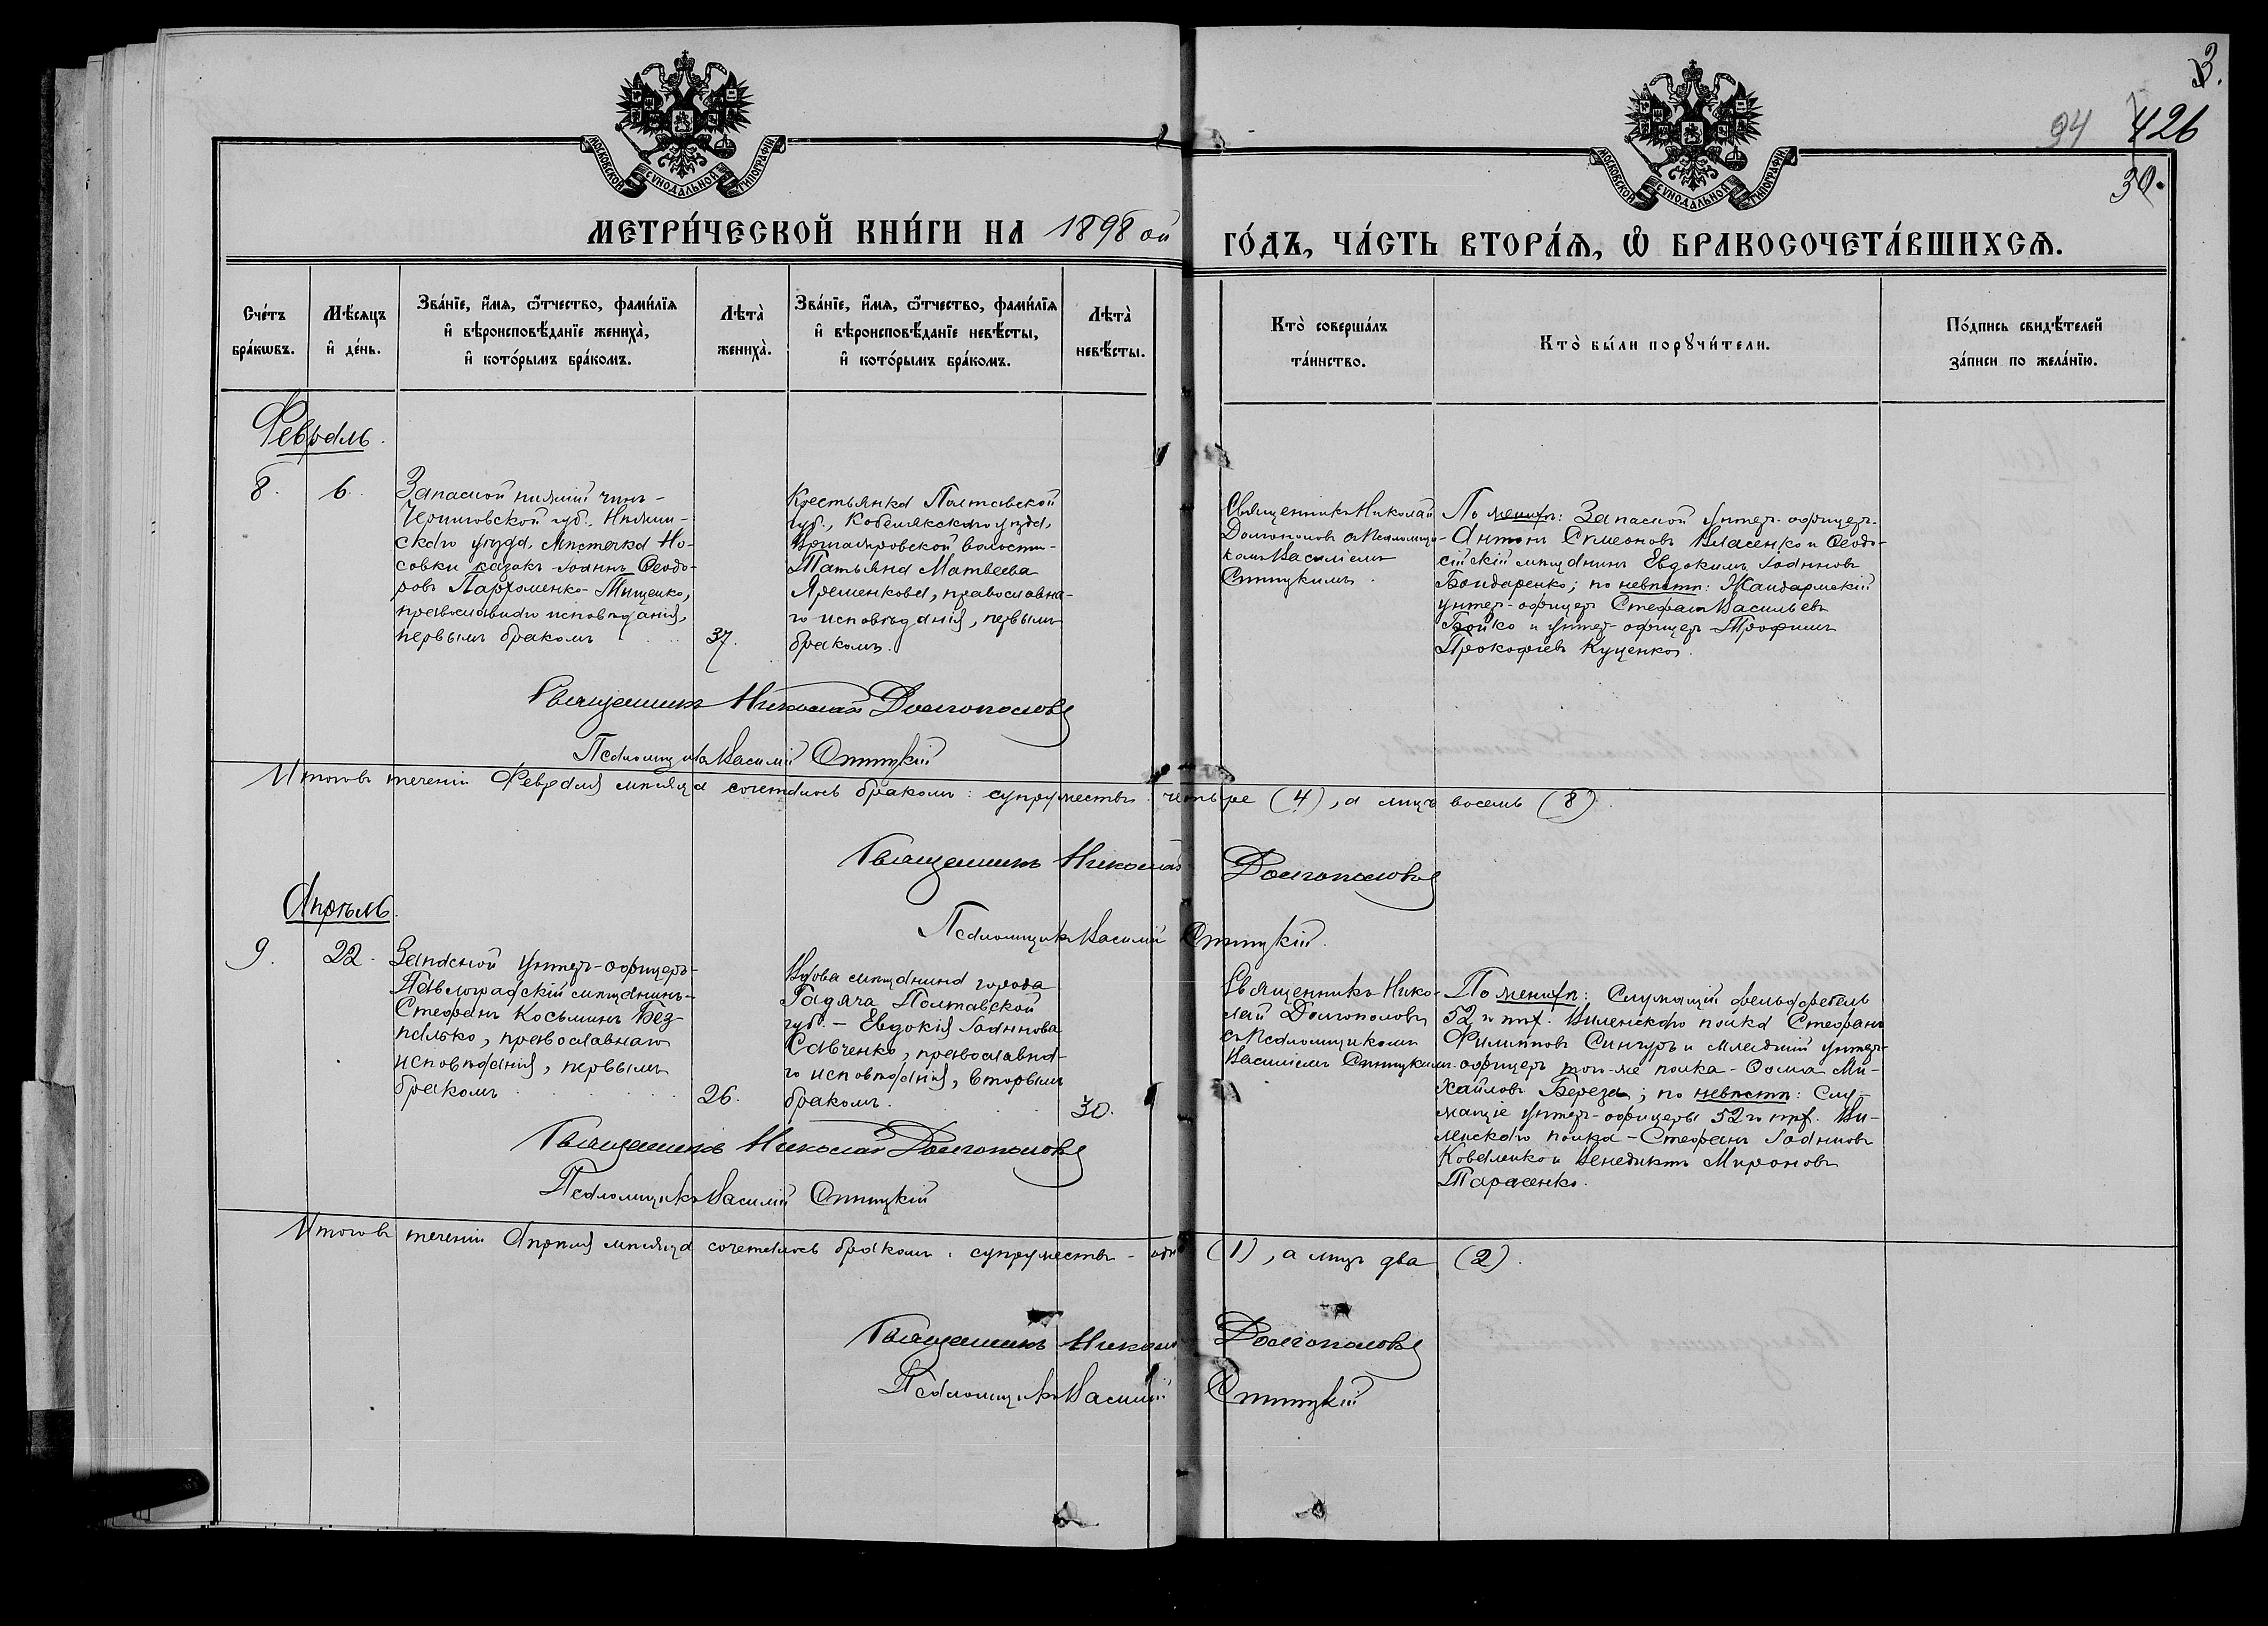 3.
94 426
30.
МОСКОВСКОЙ СѴНОДАЛЬНОЙ ТИПОГРАФІИ
МОСКОВСКОЙ СѴНОДАЛЬНОЙ ТИПОГРАФІИ
МЕТРИ́ЧЕСКОЙ КНИ́ГИ НА 1898 ой
ГО́ДЪ, ЧА́СТЬ ВТОРА́Ѧ, Ѡ҆ БРАКОСОЧЕТА́ВШИХСѦ.
Сче́тъ
бра́кѡвъ.
Мѣ́сяцъ
и҆ де́нь.
Зва́нїе, и҆́мя, ѻ҆́тчество, фами́лїя
и҆ вѣроисповѣ́данїе жениха̀,
и҆ кото́рымъ бра́комъ.
Лѣта̀
жениха̀.
Зва́нїе, и҆́мя, ѻ҆́тчество, фами́лїя
и҆ вѣроисповѣ́данїе невѣ́сты,
и҆ кото́рымъ бра́комъ.
Лѣта̀
невѣ́сты.
Кто̀ соверша́лъ
та́инство.
Кто̀ бы́ли порꙋчи́тели.
По́дпись свидѣ́телей
за́писи по жела́нїю.
Февраль.
8.
6.
Запасной нижній чинъ -
Черниговской губ., Нѣжин-
скаго уѣзда, мѣстечка Но-
совки казакъ Іоаннъ Ѳеодо-
ровъ Пархоменко-Тищенко,
православнаго исповѣданія,
первымъ бракомъ
37.
Крестьянка Полтавской
губ., Кобелякскаго уѣзда,
волости -
Татьяна Матвеева
Яременкова, православна-
го исповѣданія, первымъ
бракомъ.
Священникъ Николай
Долгополовъ съ Псаломщи-
комъ Василіемъ
По женихѣ: Запасной унтер-офицеръ-
Антонъ Симеоновъ Власенко и Ѳеодо-
сійскій мѣщанинъ Евдокимъ Іоанновъ
Бондаренко; по невѣстѣ: Жандармскій
унтер-офицеръ Стефанъ Васильевъ
Бойко и унтер-офицеръ Трофимъ
Прокофіевъ Куценко.
Священникъ Николай Долгополовъ
Псаломщикъ Василій
Итого въ теченіи Февраля мѣсяца сочеталось бракомъ: супружествъ четыре (4), а лицъ восемь (8).
Священникъ Николай Долгополовъ
Псаломщикъ Василій
Апрѣль.
9.
22.
Запасной унтер-офицеръ-
Павлоградскій мѣщанинъ-
Стефанъ Косьминъ Без-
палько, православнаго
исповѣданія, первымъ
бракомъ
26.
Вдова мѣщанина города
Гадяча Полтавской
губ. - Евдокія Іоаннова
Савченко, православна-
го исповѣданія, вторымъ
бракомъ.
30.
Священникъ Нико-
лай Долгополовъ
съ Псаломщикомъ
Василіемъ
По женихѣ: Служащій фельдфебель
52 го пѣх. Виленскаго полка Стефанъ
Филипповъ Сингуръ и младшій унтер-
офицеръ того-же полка - Ѳома Ми-
хайловъ Береза; по невѣстѣ: Слу-
жащіе унтер-офицеры 52 го пѣх. Ви-
ленскаго полка - Стефанъ Іоанновъ
Коваленко и Венедиктъ Мироновъ
Тарасенко.
Священникъ Николай Долгополовъ
Псаломщикъ Василій
Итого въ теченіи Апрѣля мѣсяца сочеталось бракомъ: супружествъ - (1), а лицъ два (2).
Священникъ Николай Долгополовъ
Псаломщикъ Василій